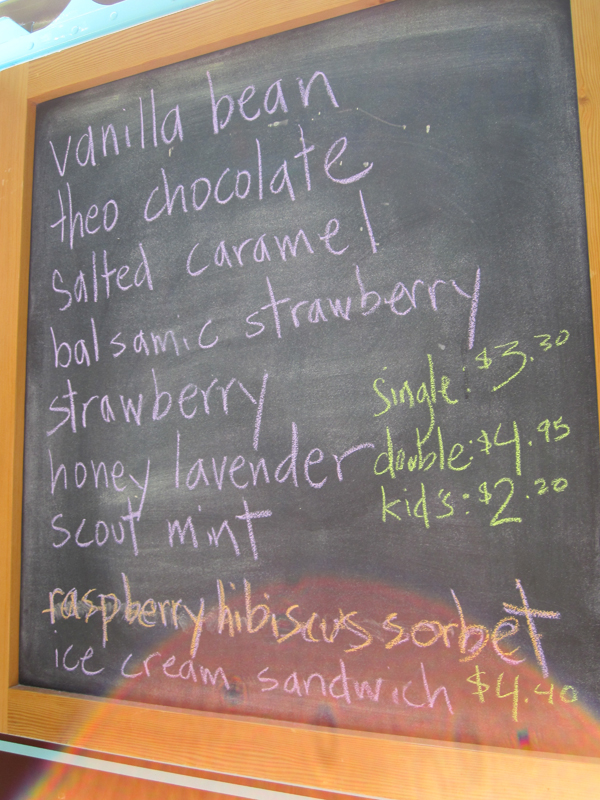 vanilla bean
theo chocolate
salted caramel
balsamic strawberry
strawberry
honey lavender
scout mint
single: $3.30
double: $4.95
kid's: $2.20
raspberry hibiscus sorbet
ice cream sandwich $4.40